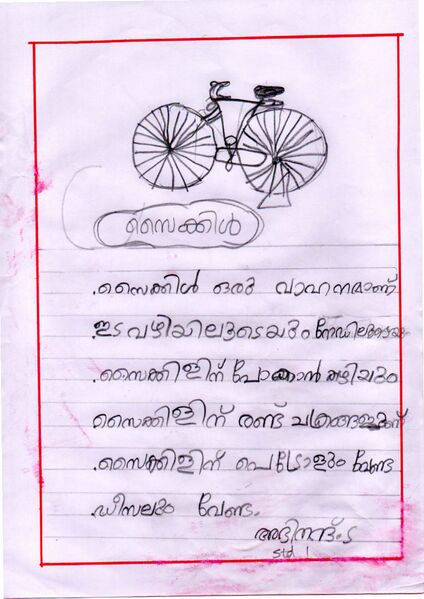 സൈക്കിൾ
.സൈക്കിൾ ഒരു വാഹനമാണ്
.ഇടവഴിയിലൂടെയും റോഡിലൂടെയും
.സൈക്കിളിന് പോകാൻ കഴിയും
സൈക്കിളിന് രണ്ട് ചക്രങ്ങളുണ്ട്
.സൈക്കിളിന് പെട്രോളും വേണ്ട
.ഡീസലും വേണ്ട.
അഭിനന്ദ്.ട
std 1